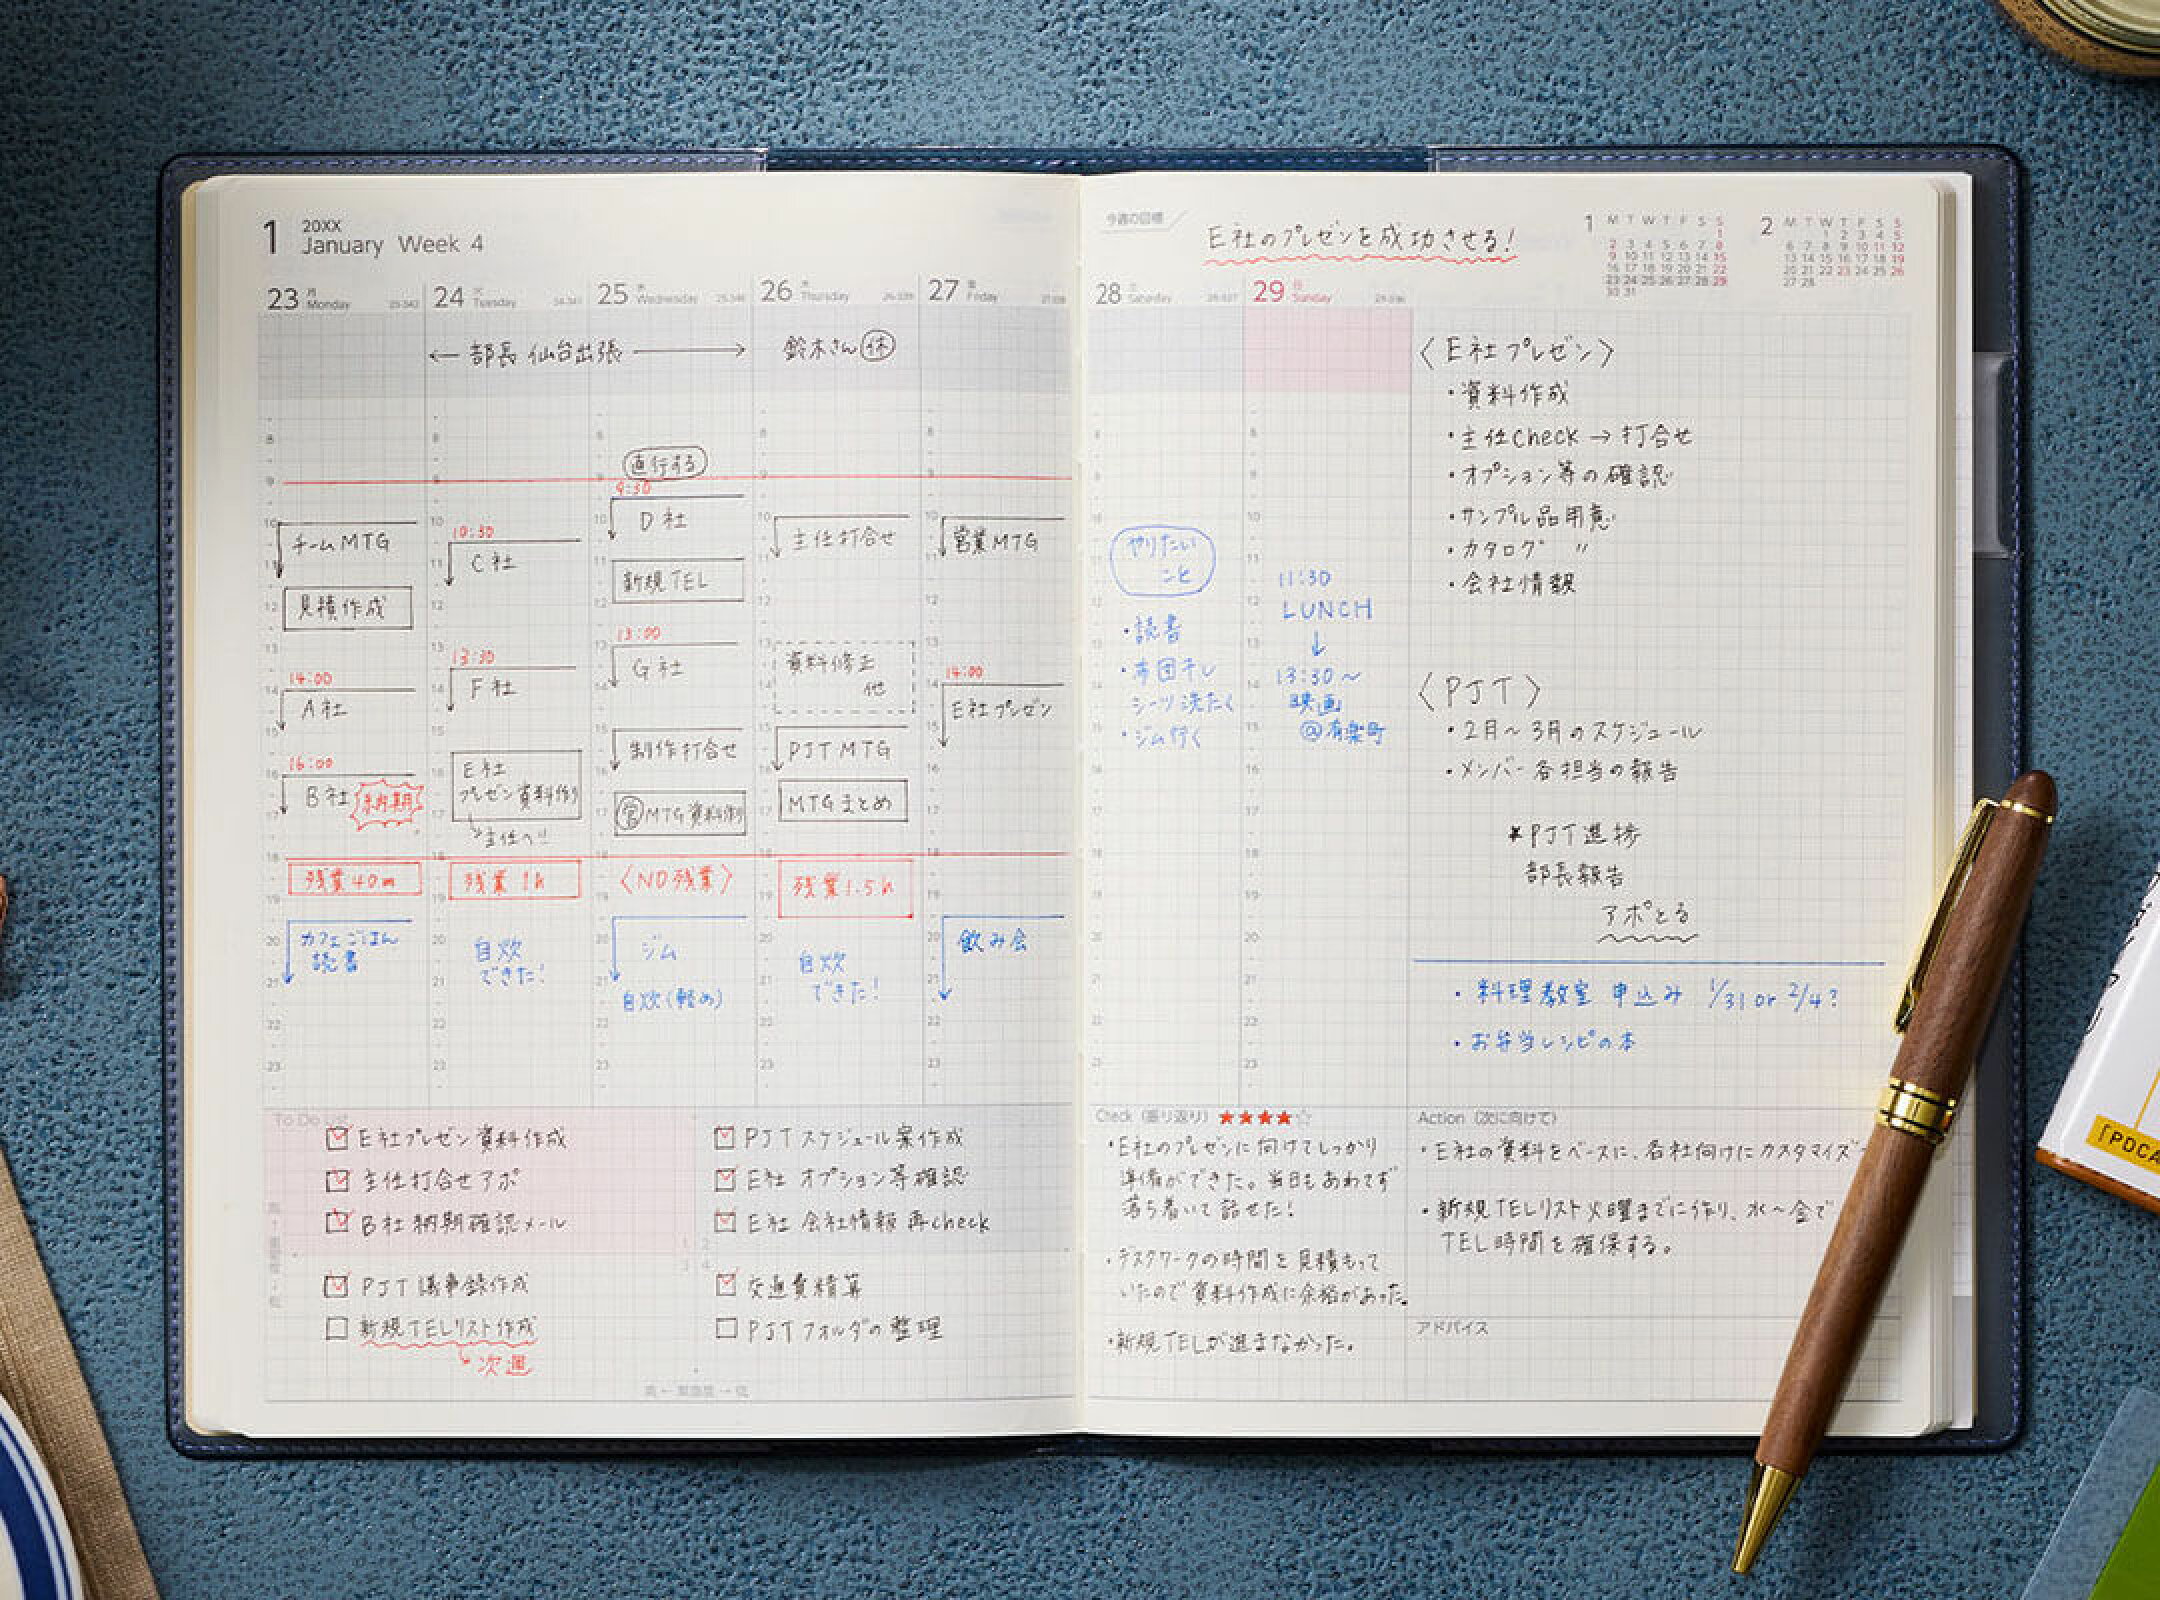 1
20XX
January Week 4
23 月 Monday
24 火 Tuesday
25 水 Wednesday
26 木 Thursday
27 金 Friday
← 部長 仙台出張 →
鈴木さん 休
8
9
10
チームMTG
11
見積作成
12
13
14:00
14
A社
15
16:00
16
B社 納期
17
残業40m
19
カフェごはん
読書
20
21
22
23
10:30
C社
13:30
F社
E社
プレゼン資料作り
↳主任へ!!
残業 1h
自炊
できた!
直行する
9:30
D社
新規TEL
13:00
G社
制作打合せ
営MTG資料作り
〈NO残業〉
ジム
自炊(軽め)
主任打合せ
資料修正
他
PJT MTG
MTGまとめ
残業1.5h
自炊
できた!
営業MTG
14:00
E社プレゼン
飲み会
To Do List
E社プレゼン資料作成
主任打合せアポ
B社納期確認メール
PJT議事録作成
新規TELリスト作成
↳次週
PJTスケジュール案作成
E社 オプション等確認
E社 会社情報 再check
交通費精算
PJTフォルダの整理
今週の目標
E社のプレゼンを成功させる!
1
M T W T F S S
1
2 3 4 5 6 7 8
9 10 11 12 13 14 15
16 17 18 19 20 21 22
23 24 25 26 27 28 29
30 31
2
M T W T F S S
1 2 3 4 5
6 7 8 9 10 11 12
13 14 15 16 17 18 19
20 21 22 23 24 25 26
27 28
28 土 Saturday
29 日 Sunday
やりたい
こと
・読書
・布団干し
シーツ洗たく
・ジム行く
11:30
LUNCH
↓
13:30〜
映画
@有楽町
〈E社プレゼン〉
・資料作成
・主任Check → 打合せ
・オプション等の確認
・サンプル品用意
・カタログ 〃
・会社情報
〈PJT〉
・2月〜3月のスケジュール
・メンバー各担当の報告
*PJT進捗
部長報告
アポとる
・料理教室 申込み 1/31 or 2/4?
・お弁当レシピの本
Check(振り返り)★★★★☆
・E社のプレゼンに向けてしっかり
準備ができた。当日もあわてず
落ち着いて話せた!
・デスクワークの時間を見積もって
いたので資料作成に余裕があった。
・新規TELが進まなかった。
Action(次に向けて)
・E社の資料をベースに、各社向けにカスタマイズ
・新規TELリスト火曜までに作り、水〜金で
TEL時間を確保する。
アドバイス
「PDCA